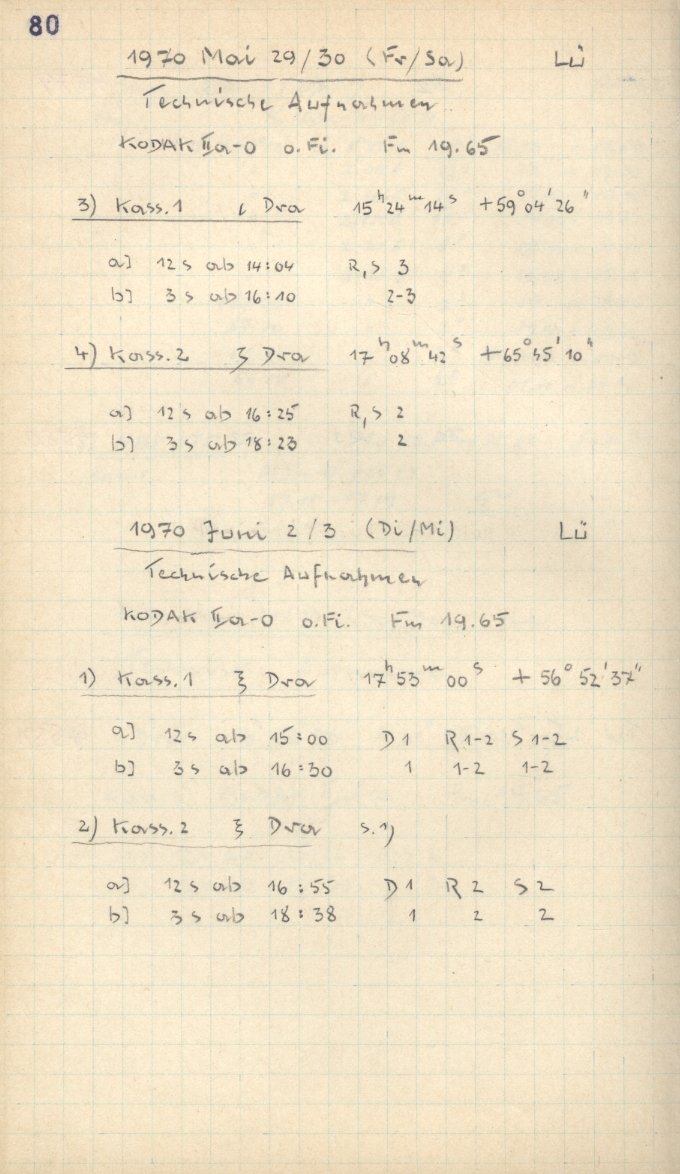 80
1970 Mai 29/30 (Fr/Sa) Lü
Technische Aufnahmen
KODAK IIa-O o.Fi. Fm 19.65
3) Kass. 1 ι Dra 15ʰ24ᵐ14ˢ +59°04'26"
a] 12 s ab 14:04 R,S 3
b] 3 s ab 16:10 2-3
4) Kass. 2 ζ Dra 17ʰ08ᵐ42ˢ +65°45'10"
a] 12 s ab 16:25 R,S 2
b] 3 s ab 18:23 2
1970 Juni 2/3 (Di/Mi) Lü
Technische Aufnahmen
KODAK IIa-O o.Fi. Fm 19.65
1) Kass. 1 ξ Dra 17ʰ53ᵐ00ˢ +56°52'37"
a] 12 s ab 15:00 D 1 R 1-2 S 1-2
b] 3 s ab 16:30 1 1-2 1-2
2) Kass. 2 ξ Dra s. 1)
a] 12 s ab 16:55 D 1 R 2 S 2
b] 3 s ab 18:38 1 2 2